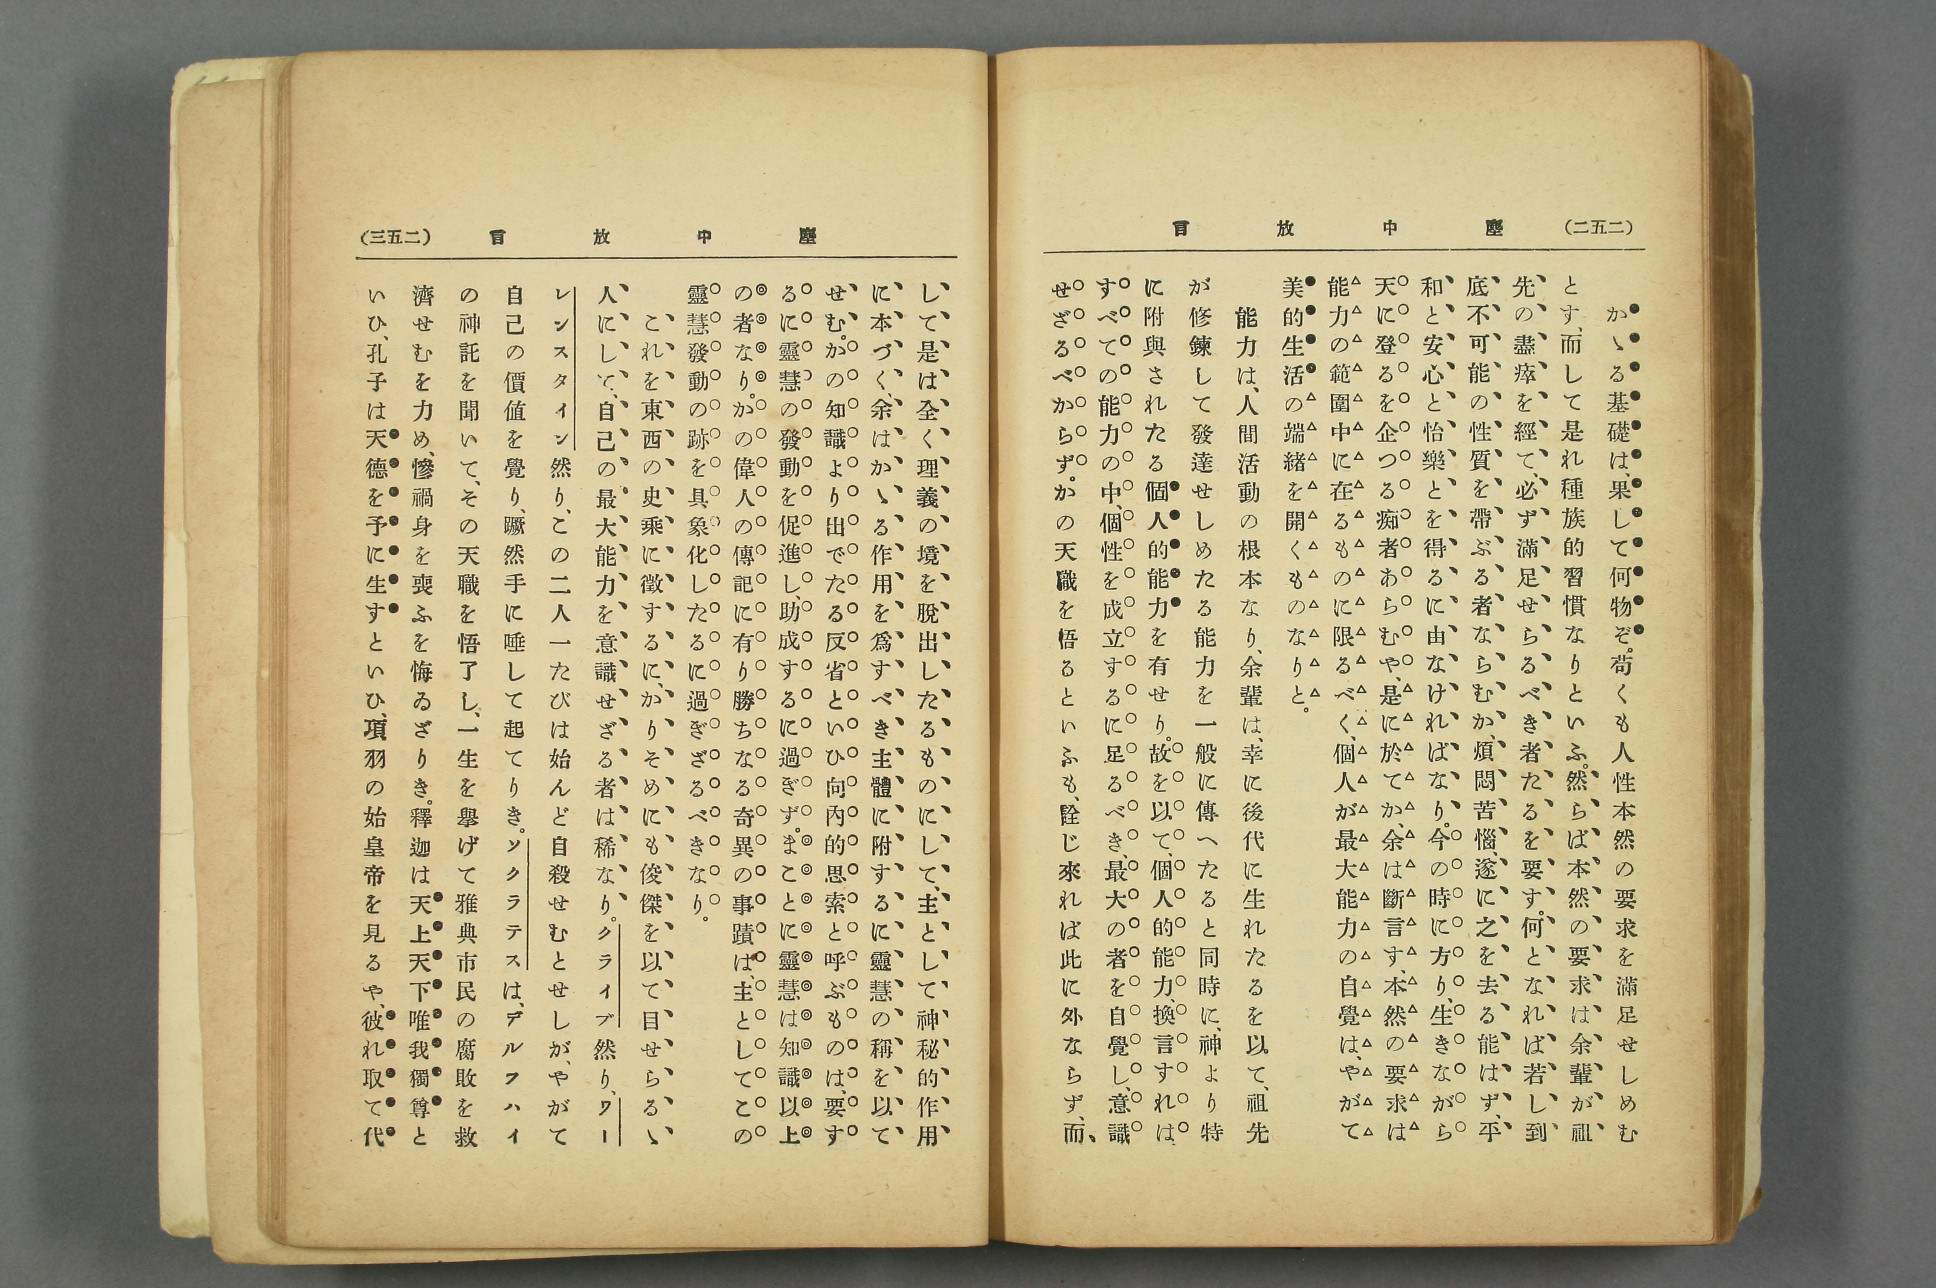 (二五二)　塵中放言
かゝる基礎は、果して何物ぞ。苟くも人性本然の要求を滿足せしめむ
とす、而して是れ種族的習慣なりといふ。然らば本然の要求は余輩が祖
先の盡瘁を經て、必ず滿足せらるべき者たるを要す。何となれば若し到
底不可能の性質を帶ぶる者ならむか、煩悶苦惱、遂に之を去る能はず、平
和と安心と怡樂とを得るに由なければなり。今の時に方り、生きながら
天に登るを企つる痴者あらむや、是に於てか、余は斷言す、本然の要求は
能力の範圍中に在るものに限るべく、個人が最大能力の自覺は、やがて
美的生活の端緒を開くものなりと。
能力は、人間活動の根本なり、余輩は、幸に後代に生れたるを以て、祖先
が修鍊して發達せしめたる能力を一般に傳へたると同時に、神より特
に附與されたる個人的能力を有せり。故を以て、個人的能力、換言すれは
すべての能力の中、個性を成立するに足るべき、最大の者を自覺し、意識
せざるべからず。かの天職を悟るといふも、詮じ來れば此に外ならず、而
(二五三)　塵中放言
して是は全く理義の境を脫出したるものにして、主として神秘的作用
に本づく、余はかゝる作用を爲すべき主體に附するに靈慧の稱を以て
せむ。かの知識より出でたる反省といひ向內的思索と呼ぶものは、要す
るに靈慧の發動を促進し、助成するに過ぎず。まことに靈慧は知識以上
の者なり。かの偉人の傳記に有り勝ちなる奇異の事蹟は、主としてこの
靈慧發動の跡を具象化したるに過ぎざるべきなり。
これを東西の史乘に徵するに、かりそめにも俊傑を以て目せらるゝ
人にして、自己の最大能力を意識せざる者は稀なり。クライブ然り、ワー
レンスタイン然り、この二人一たびは始んど自殺せむとせしが、やがて
自己の價値を覺り、蹶然手に唾して起てりき。ソクラテスは、デルフハイ
の神託を聞いて、その天職を悟了し、一生を擧げて雅典市民の腐敗を救
濟せむを力め、慘禍身を喪ふを悔ゐざりき。釋迦は天上天下唯我獨尊と
いひ、孔子は天德を予に生すといひ、項羽の始皇帝を見るや、彼れ取て代